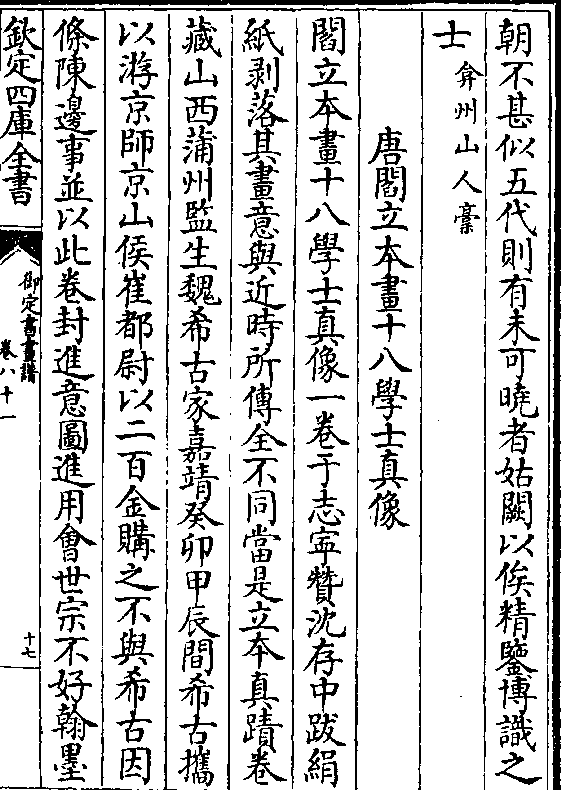 朝不甚似五代則有未可曉者姑闕以俟精鑒博識之
士弇州山人藁
唐閻立本畫十八學士真像
閻立本畫十八學士真像一卷于志寧贊沈存中跋絹
紙剥落其畫意與近時所傳全不同當是立本真蹟卷
藏山西蒲州監生魏希古家嘉靖癸卯甲辰間希古攜
以游京師京山侯崔都尉以二百金購之不與希古因
條陳邊事並以此卷封進意圖進用會世宗不好翰墨
欽定四庫全書
御定書畫譜
卷八十一
十七